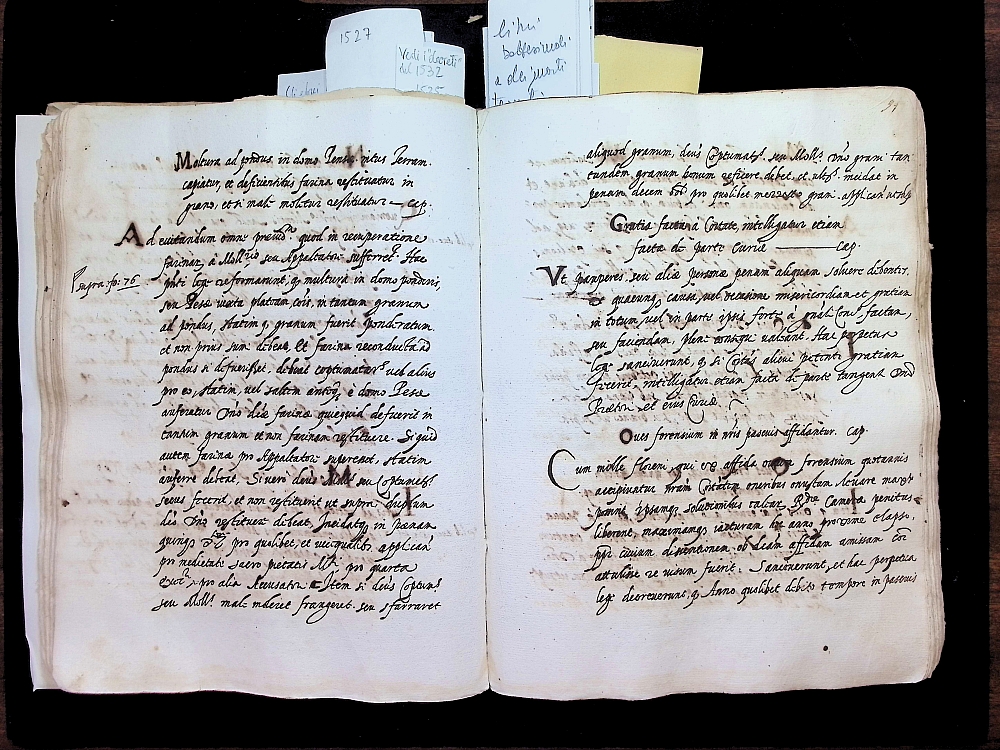 1527
Vedi i decreti
del 1532
1535
libri
battesimali
e dei morti
Moltura ad pondus in domo Pensę intus Terram
capiatur, et deficientibus farina restituatur in
grano, et si male molitur restituatur — cap.
Ad evitandum omne quod in recuperatione
farinar, à seu Appaltator sufferret. Hac
supra fo: 76
lege reformarunt, q multura in domo ponderis,
seu Pesę iuxta plateam cõis, in tantum granum
ad pondus, statim q granum fuerit ponderatum
et non prius sumi debeat, Et farina reconducta ad
pondus si defuerit, debeat coptumator vel alius
pro eo, statim, vel saltem anteq, è domo Pesę
auferatur Dno dictę farinę quicquid defuerit in
tantum granum et non farinam restituere. Si quid
autem farinę pro Appaltator supererit, statim
auferre debeat, Si vero deius seu Coptumat
secus fecerit, et non restituerit ut supra, duplum
Dno restituere debeat, Incidatq, in penam
quinq pro quolibet, et vice qualibet applican
pro medietate Sacro pietatis pro quarta
pro alia Accusator Item si deius Coptum
seu Moll male moleret frangeret, seu sfarraret
91
aliquod granum, deius Coptumat. seu Moll. Dno grani tan
tundem granum bonum reficere debet, et ultr. incidat in
penam decem pro quolibet grani applican ut sup
Gratia facta à Cõitate, intelligatur etiam
facta de Parte Curię — cap.
Ut pauperes, seu alię personę penam aliquam solvere debentes,
quacunq causa, vel occasione misericordiam et gratiam
in totum, vel in parte ipsis forte à gñali Cons. factam,
seu faciendam, plene consequi valeant. Hac perpetua
lege sancierunt, q, si Cõitas alicui petenti gratiam
fecerit, intelligatur etiam facta de parte tangent Dno
Pretori, et eius Curię
Oves forensium in nris pascuis affidantur. Cap.
Cum mille floreni, qui ex affida ovium forensium quotannis
accipiuntur nram Cõitatem oneribus onustam levare
ipsamq solutionibus Camerę penitus
liberent, maximamq iacturam hoc anno proxime elapso,
ppr civium disentionem, ob dictam affidam amissam
attulisse re visum fuerit. Sancierunt, et hac perpetua
lege decreverunt, q, Anno quolibet debito tempore in pascuis